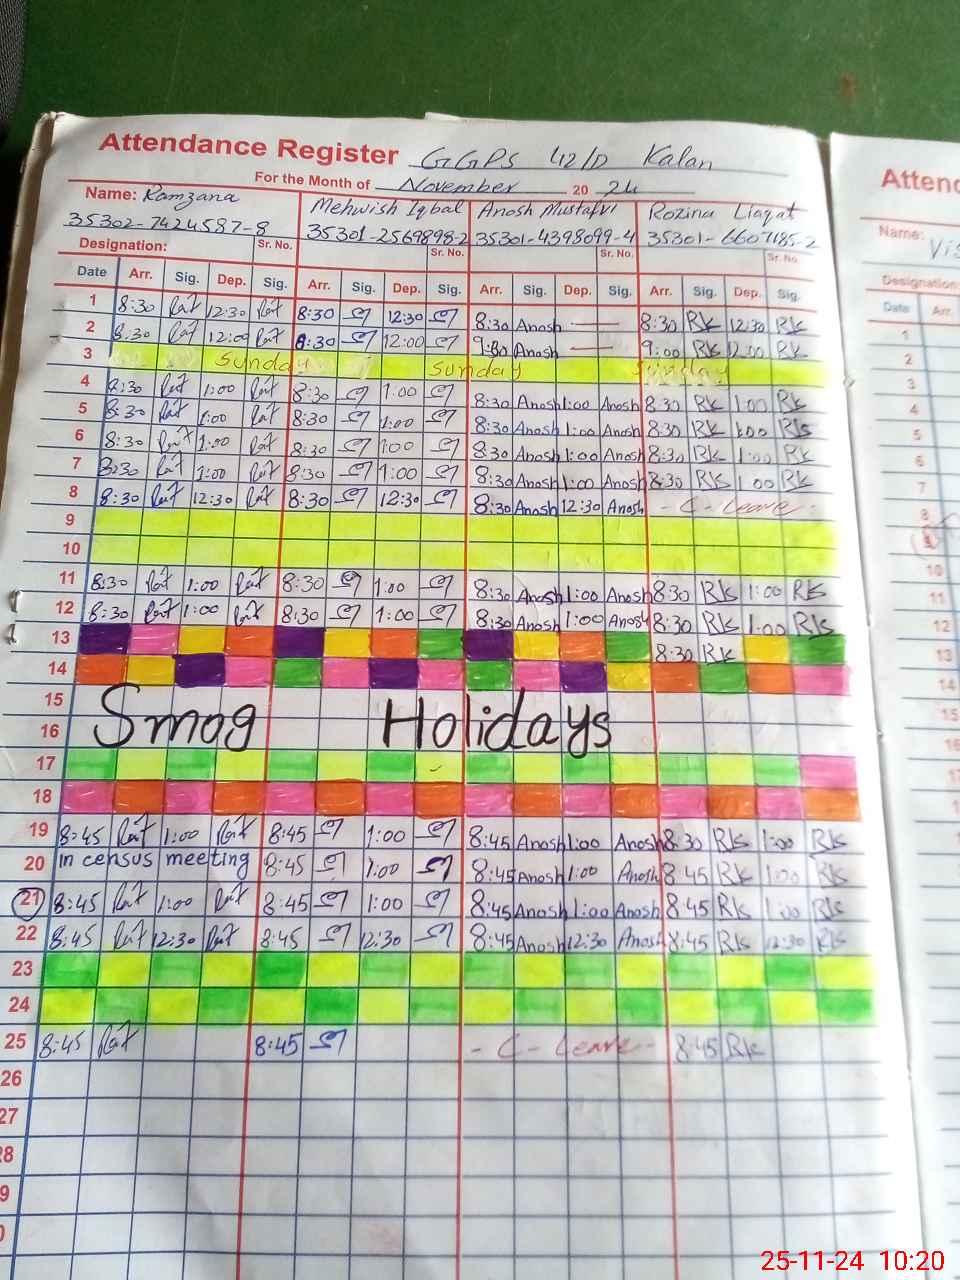 Attendance Register GGPS 42/D Kalan
For the Month of November 2024
Name: Ramzana Mehwish Iqbal Anosh Mustafvi Rozina Liaqat
35302-7424587-8 35301-2569898-2 35301-4398099-4 35301-6607185-2
Designation: Sr. No. Sr. No. Sr. No. Sr. No.
Date Arr. Sig. Dep. Sig. Arr. Sig. Dep. Sig. Arr. Sig. Dep. Sig. Arr. Sig. Dep. Sig.
1 8:30 12:30 8:30 12:30 8:30 Anosh — 8:30 RK 12:30 RK
2 8:30 12:00 8:30 12:00 9:30 Anosh — 9:00 RK 12:00 RK
3 Sunday Sunday Sunday
4 8:30 1:00 8:30 1:00 8:30 Anosh 1:00 Anosh 8:30 RK 1:00 RK
5 8:30 1:00 8:30 1:00 8:30 Anosh 1:00 Anosh 8:30 RK 1:00 RK
6 8:30 1:00 8:30 1:00 8:30 Anosh 1:00 Anosh 8:30 RK 1:00 RK
7 8:30 1:00 8:30 1:00 8:30 Anosh 1:00 Anosh 8:30 RK 1:00 RK
8 8:30 12:30 8:30 12:30 8:30 Anosh 12:30 Anosh - C - Leave -
9
10
11 8:30 1:00 8:30 1:00 8:30 Anosh 1:00 Anosh 8:30 RK 1:00 RK
12 8:30 1:00 8:30 1:00 8:30 Anosh 1:00 Anosh 8:30 RK 1:00 RK
13 8:30 RK
14
15
Smog Holidays
16
17
18
19 8:45 1:00 8:45 1:00 8:45 Anosh 1:00 Anosh 8:30 RK 1:00 RK
20 in census meeting 8:45 1:00 8:45 Anosh 1:00 Anosh 8:45 RK 1:00 RK
21 8:45 1:00 8:45 1:00 8:45 Anosh 1:00 Anosh 8:45 RK 1:00 RK
22 8:45 12:30 8:45 12:30 8:45 Anosh 12:30 Anosh 8:45 RK 12:30 RK
23
24
25 8:45 8:45 - C - Leave - 8:45 RK
26
27
28
9
0
Atten
Name: Vis
Designation:
Date Arr.
1
2
3
4
5
6
7
8
9
10
11
12
13
14
15
16
25-11-24 10:20